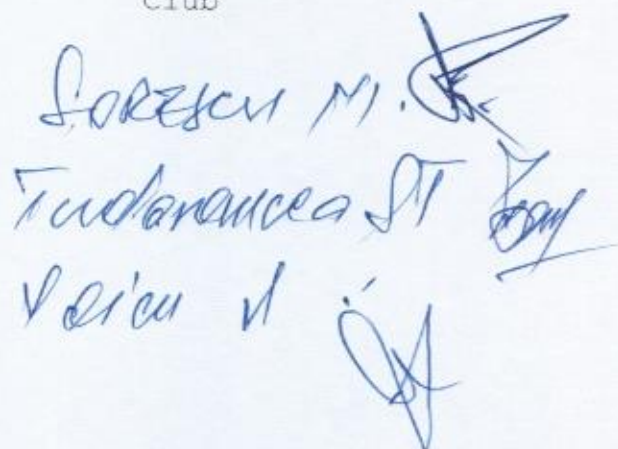 Club
Sorescu M.
Tudorancea ST
Voicu V